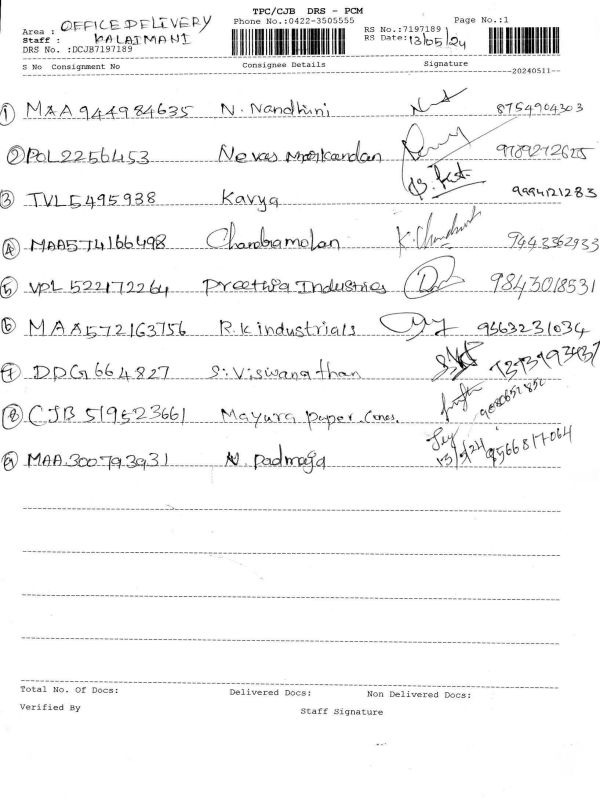 TPC/CJB DRS - PCM
Area : OFFICE DELIVERY Phone No.:0422-3505555 RS No.:7197189 Page No.:1
Staff : KALAIMANI RS Date: 13/05/24
DRS No. :DCJB7197189
S No Consignment No Consignee Details Signature
20240511
1 MAA944984635 N. Nandhini 8754904303
2 POL2256453 Nevas Markandan
3 TVL5495938 Kavya 9994121283
4 MAA574166498 Chandramohan K. 9443362933
5 VPL522172264 Preethia Industries 9843018531
6 MAA572163756 R.K industrials 9363231034
7 DDG664827 S. Viswanathan
8 CJB519523661 Mayura paper cones.
9 MAA300793931 N. Padmaja 13/5/24 9566817064
Total No. Of Docs: Delivered Docs: Non Delivered Docs:
Verified By Staff Signature